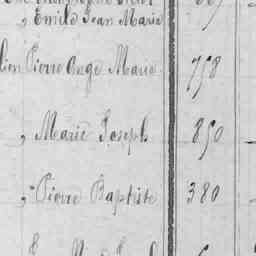 , Emile Jean Marie
lien Pierre Ange Marie 758
, Marie Joseph 850
, Pierre Baptiste 380